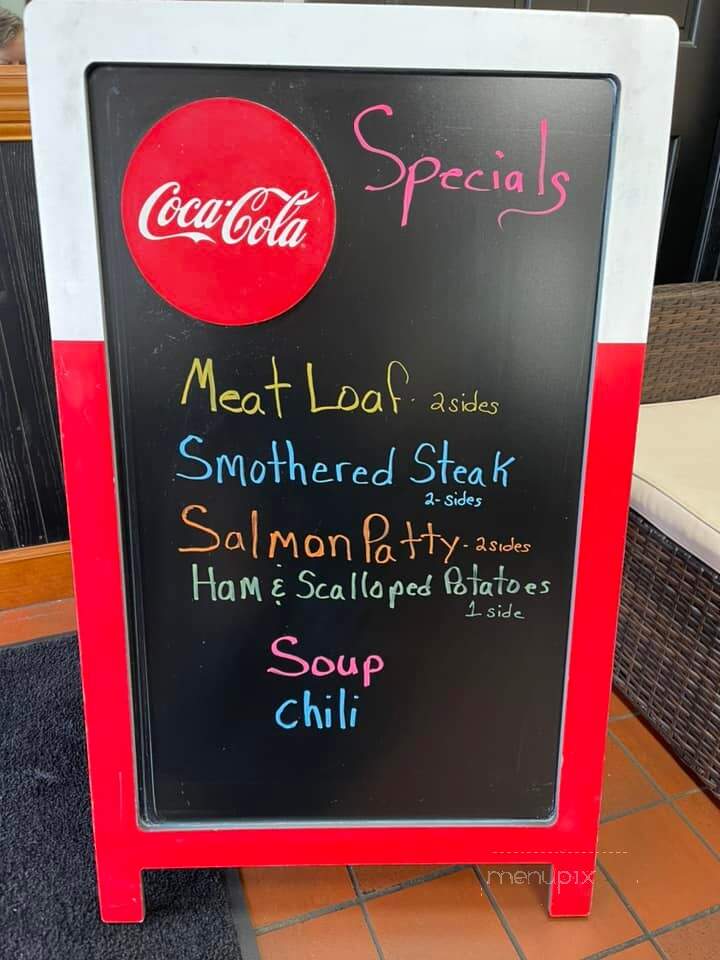 Coca-Cola
Specials
Meat Loaf - 2 sides
Smothered Steak
2-sides
Salmon Patty - 2 sides
Ham & Scalloped Potatoes
1 side
Soup
Chili
menupix